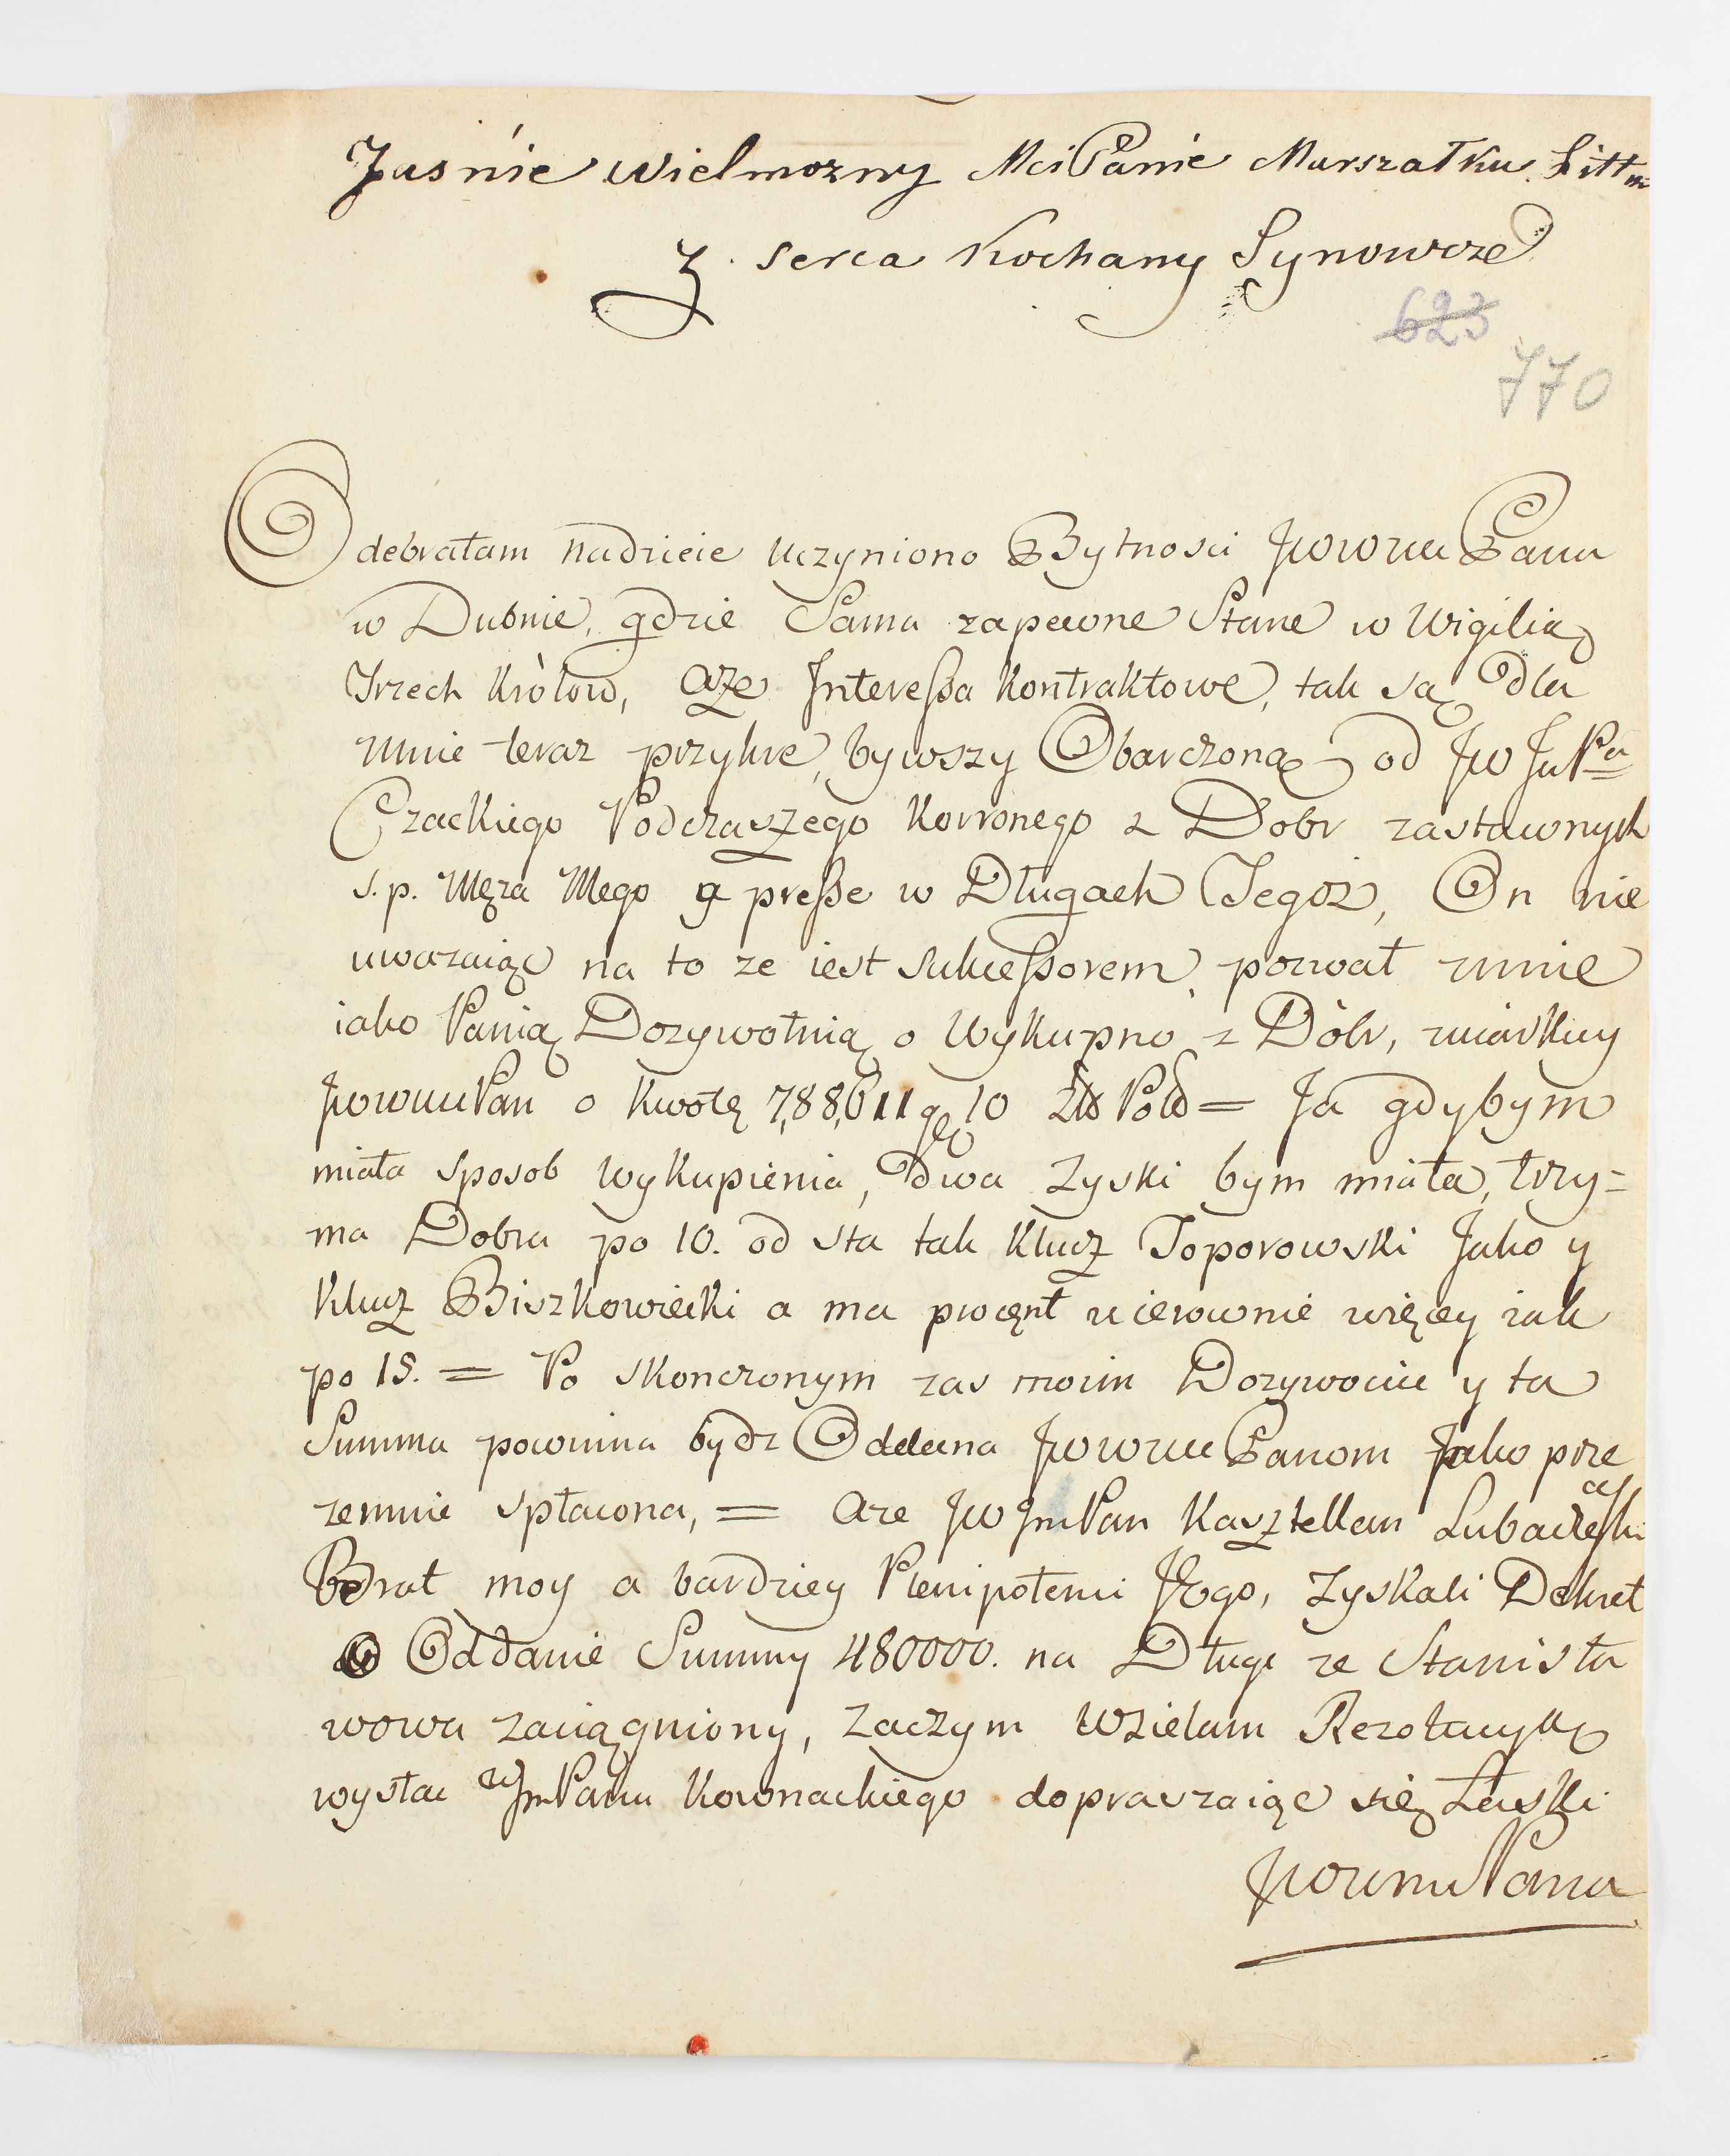 Jasnie Wielmozny Mci Panie Marszałku Litt
Z serca Kochany Synowcze
623
770
Odebrałam nadzieie uczyniono Bytnosci JWWM Pana
w Dubnie, gdzie Sama zapewne Stane w Wigilią
Trzech Królow, aże Interessa kontraktowe, tak są dla
mnie teraz przykre, bywszy Obarczoną od JW Jm Pa
Czackiego Podczaszego Korronego z Dobr zastawnych
s.p. Męza Mego presse w Długach Tegoż, On nie
uwazaiąc na to ze iest sukcessorem, pozwał mnie
iako Panią Dozywotnią o Wykupno z Dóbr, miarkuy
JWWM Pan o Kwotę 788611 g 10 Zł Pol = Ja gdybym
miała sposob Wykupienia, Dwa Zyski bym miała, trzy=
ma Dobra po 10. od sta tak Klucz Toporowski Jako y
Klucz Biszkowiecki a ma procęnt nierownie więcey iak
po 15. = Po skonczonym zas moim Dozywociu y ta
Summa powinna bydz Oddana JWWM Panom Jako prze
zemnie spłacona, = aze JW Jm Pan Kasztellan Lubaczeski
Brat moy a bardziey Plenipotenci JEgo, Zyskali Dekret
o Oddanie Summy 480000. na Długi ze Stanisła
wowa zaciągniony, Zaczym Wzielam Rezolucyą
wysłac Jm Pana Kownackiego dopraszaiąc się Łaski
JWWM Pana